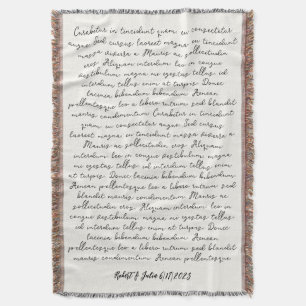 Curabitur in tincidunt quam, in consectetur
augue. Sed cursus laoreet magna in tincidunt
magna dictum a. Mauris ac sollicitudin
eros. Aliquam interdum leo in congue
vestibulum. magna ac egestas tellus, id
interdum tellus enim at turpis. Donec
lacinia bibendum bibendum. Aenean
pellentesque leo a libero rutrum, sed blandit
mauris condimentum. Curabitur in tincidunt
quam, in consectetur augue. Sed cursus
laoreet magna in tincidunt magna dictum a.
Mauris ac sollicitudin eros. Aliquam
interdum leo in congue vestibulum. magna
ac egestas tellus, id interdum tellus enim
at turpis. Donec lacinia bibendum bibendum.
Aenean pellentesque leo a libero rutrum, sed
blandit mauris condimentum. Mauris ac
sollicitudin eros. Aliquam interdum leo in
congue vestibulum. magna ac egestas tellus,
id interdum tellus enim at turpis. Donec
lacinia bibendum bibendum. Aenean
pellentesque leo a libero rutrum, sed blandit
mauris condimentum. Aenean pellentesque
Robert & Julia 6.17.2023